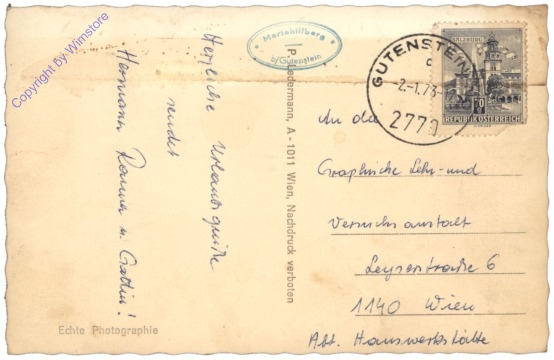 Copyright by Wimstore
Mariahilfberg
b/Gutenstein
SALZBURG
GUTENSTEIN
c
-2.-1.73-
2770
REPUBLIK ÖSTERREICH
Herzliche Urlaubsgrüße
sendet
Hermann u. Gattin!
P. Ledermann, A - 1011 Wien, Nachdruck verboten
An die
Graphische Lehr- und
Versuchsanstalt
Leyserstraße 6
1140 Wien
Abt. Hauswerkstätte
Echte Photographie